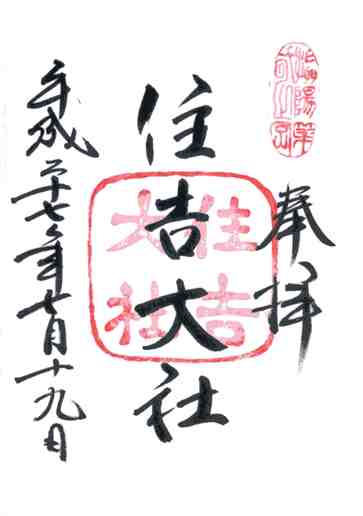 奉拝
住吉大社
住吉
大社
平成二十七年七月十九日